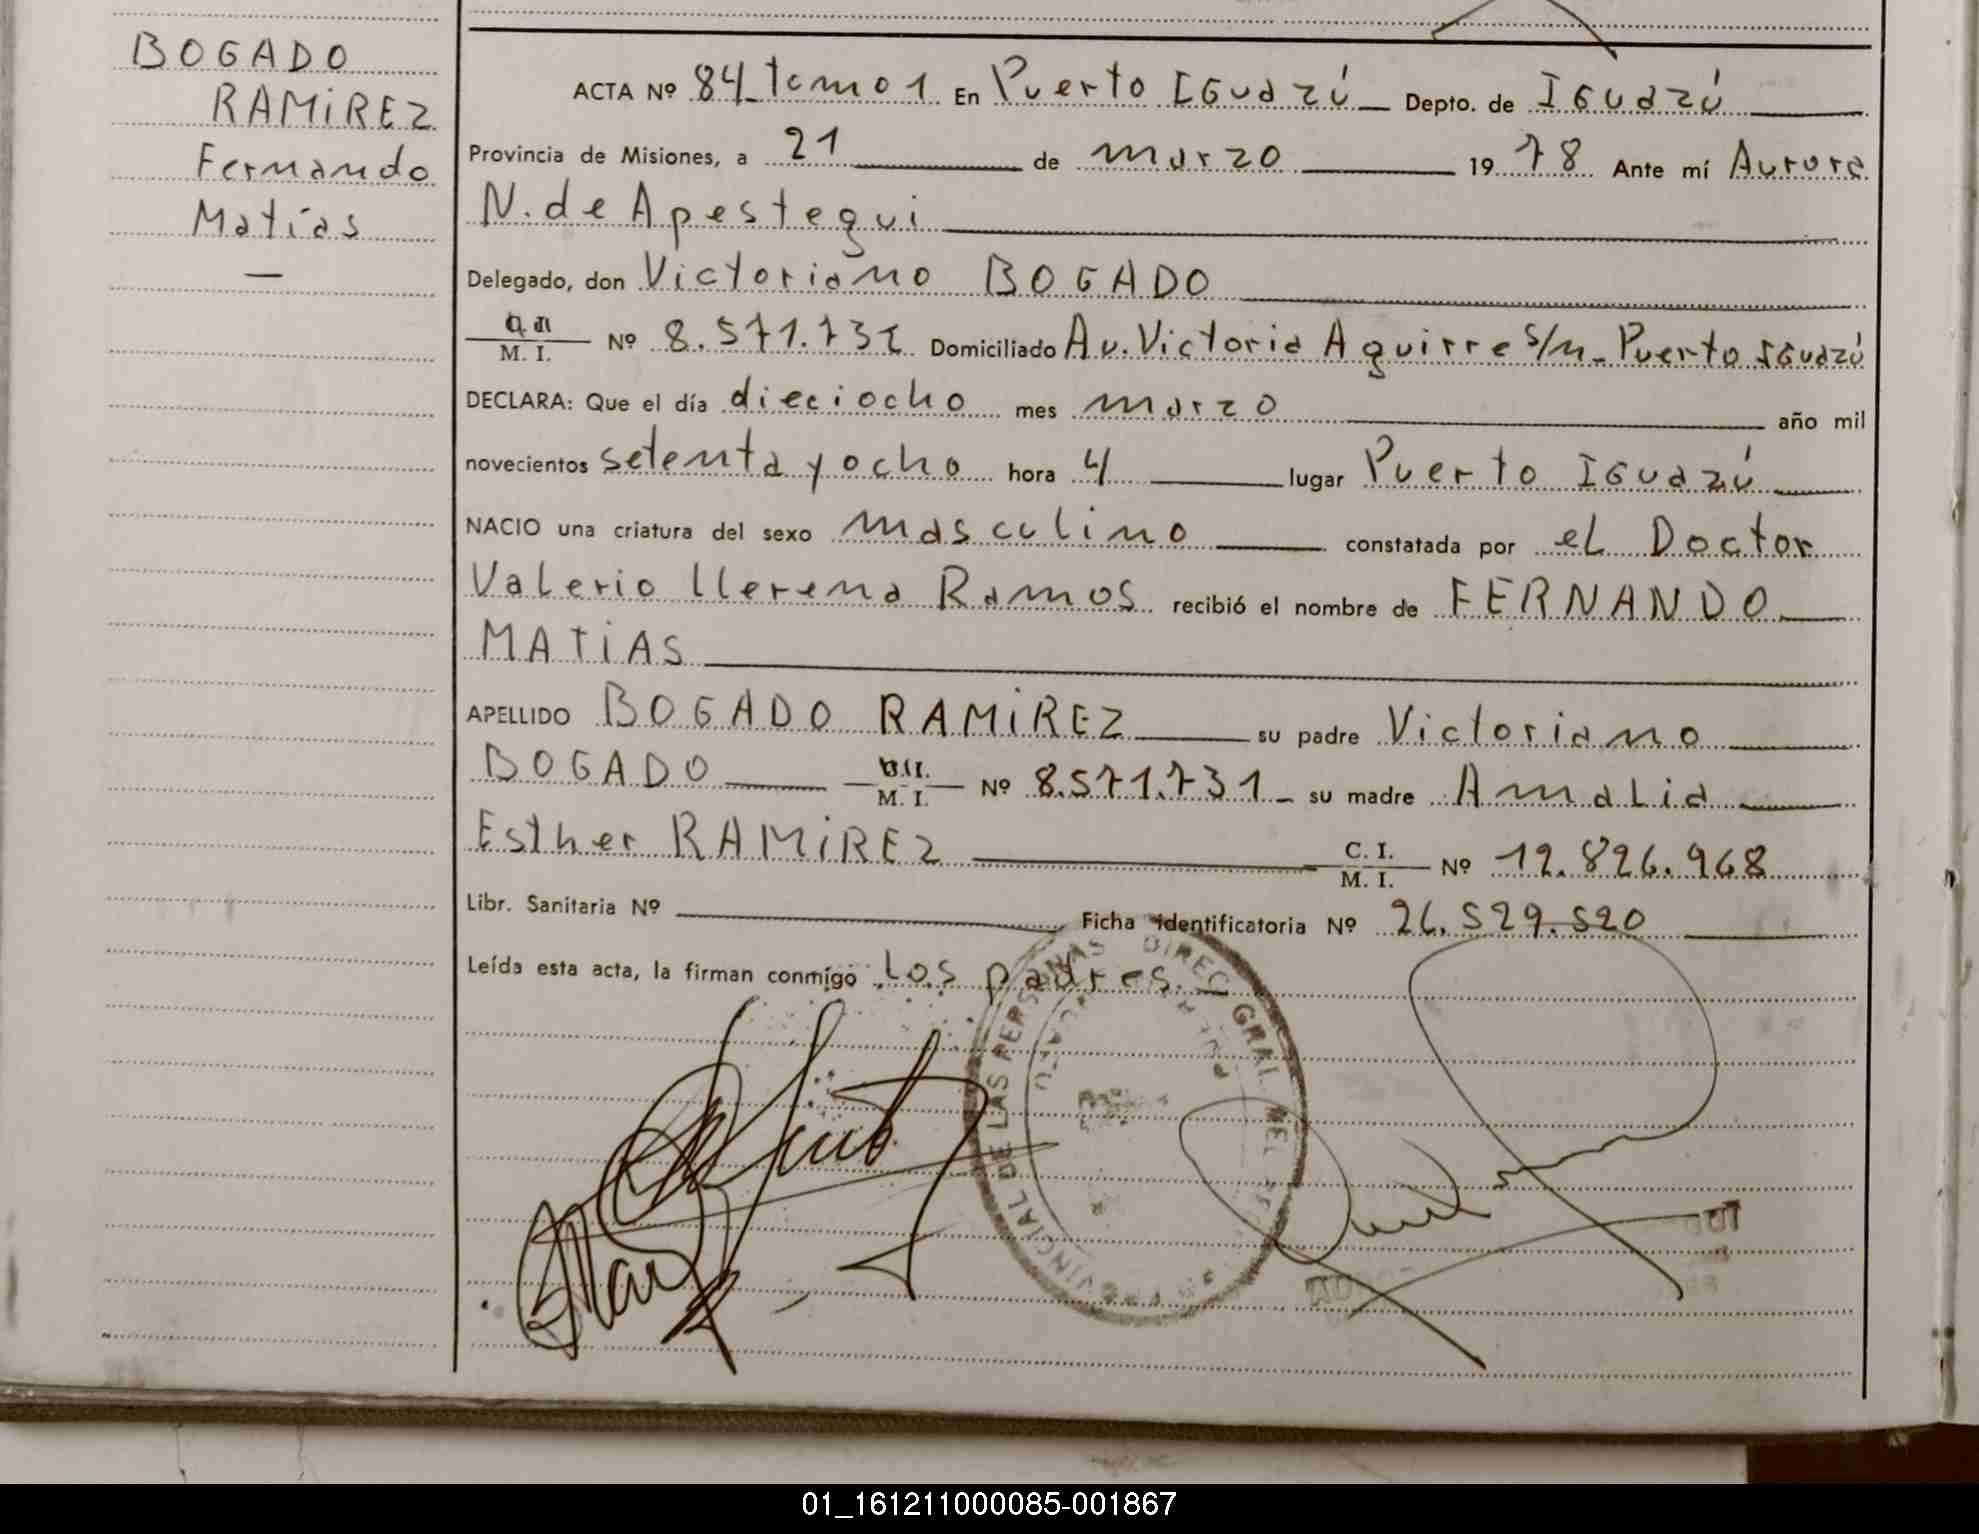 BOGADO
RAMiREZ
Fernando
Matías
—
ACTA Nº 84 tomo 1 En Puerto IGuazú Depto. de IGuazú
Provincia de Misiones, a 21 de marzo 1978 Ante mí Aurora
N. de Apestegui
Delegado, don Victoriano BOGADO
M. I. Nº 8.571.731 Domiciliado Av. Victoria Aguirre s/n - Puerto IGuazú
DECLARA: Que el día dieciocho mes marzo año mil
novecientos setenta y ocho hora 4 lugar Puerto IGuazú
NACIO una criatura del sexo masculino constatada por eL Doctor
Valerio Llerena Ramos recibió el nombre de FERNANDO
MATiAS
APELLIDO BOGADO RAMiREZ su padre Victoriano
BOGADO M. I. Nº 8.571.731 - su madre AmaLia
Esther RAMiREZ C. I. M. I. Nº 12.826.968
Libr. Sanitaria Nº Ficha identificatoria Nº 26.529.520
Leída esta acta, la firman conmigo los padres. -
PROVINCIAL DE LAS PERSONAS DIREC. GRAL. DEL
01_161211000085-001867